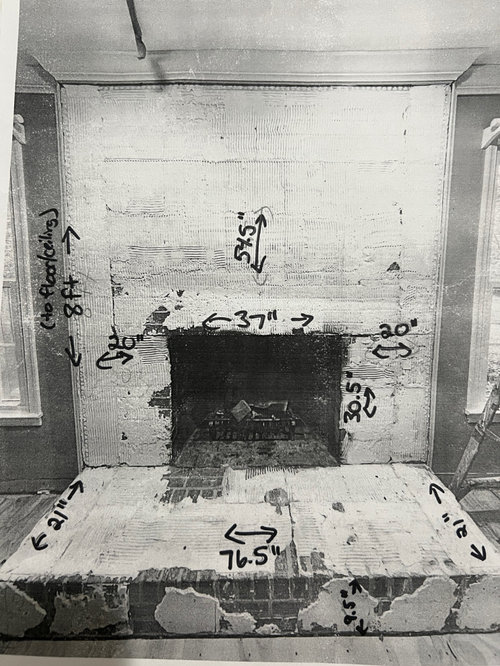 (to floor/ceiling)
8ft
54.5"
37"
20"
20"
30.5"
21"
21"
76.5"
9.5"